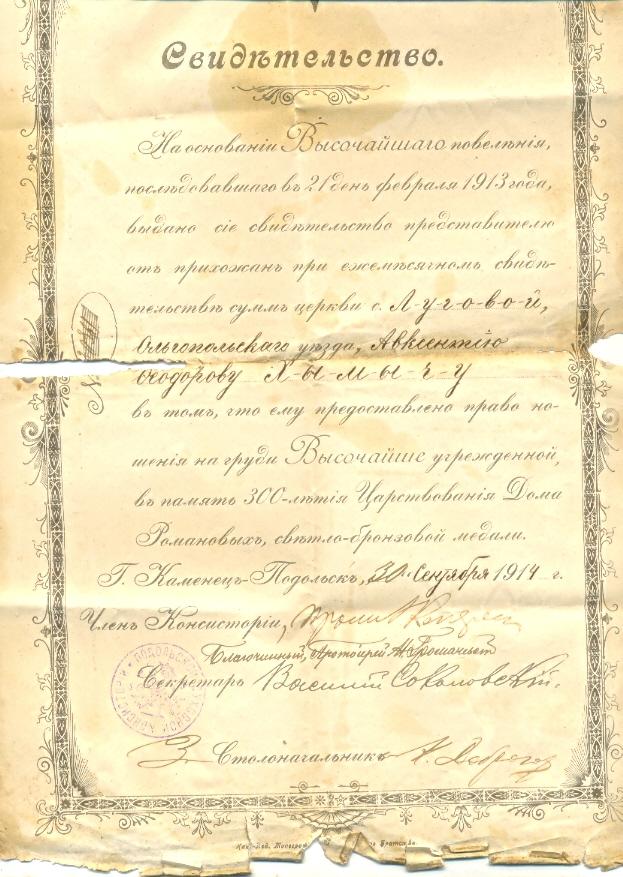 Свидѣтельство.
На основаніи Высочайшаго повелѣнія,
послѣдовавшаго въ 21 день февраля 1913 года,
выдано сіе свидѣтельство представителю
отъ прихожанъ при ежемѣсячномъ свидѣ-
тельствѣ суммъ церкви с. Л-у-г-о-в-о-й,
Ольгопольскаго уѣзда, Авксентію
Ѳеодорову Х-ы-м-ы-ч-у
въ томъ, что ему предоставлено право но-
шенія на груди Высочайше учрежденной,
въ память 300-лѣтія Царствованія Дома
Романовыхъ, свѣтло-бронзовой медали.
№
Г. Каменецъ-Подольскъ, 30 Сентября 1914 г.
Членъ Консисторіи,
Благочинный, Протоіерей
Секретарь Василій Соколовскій.
З. Столоначальникъ